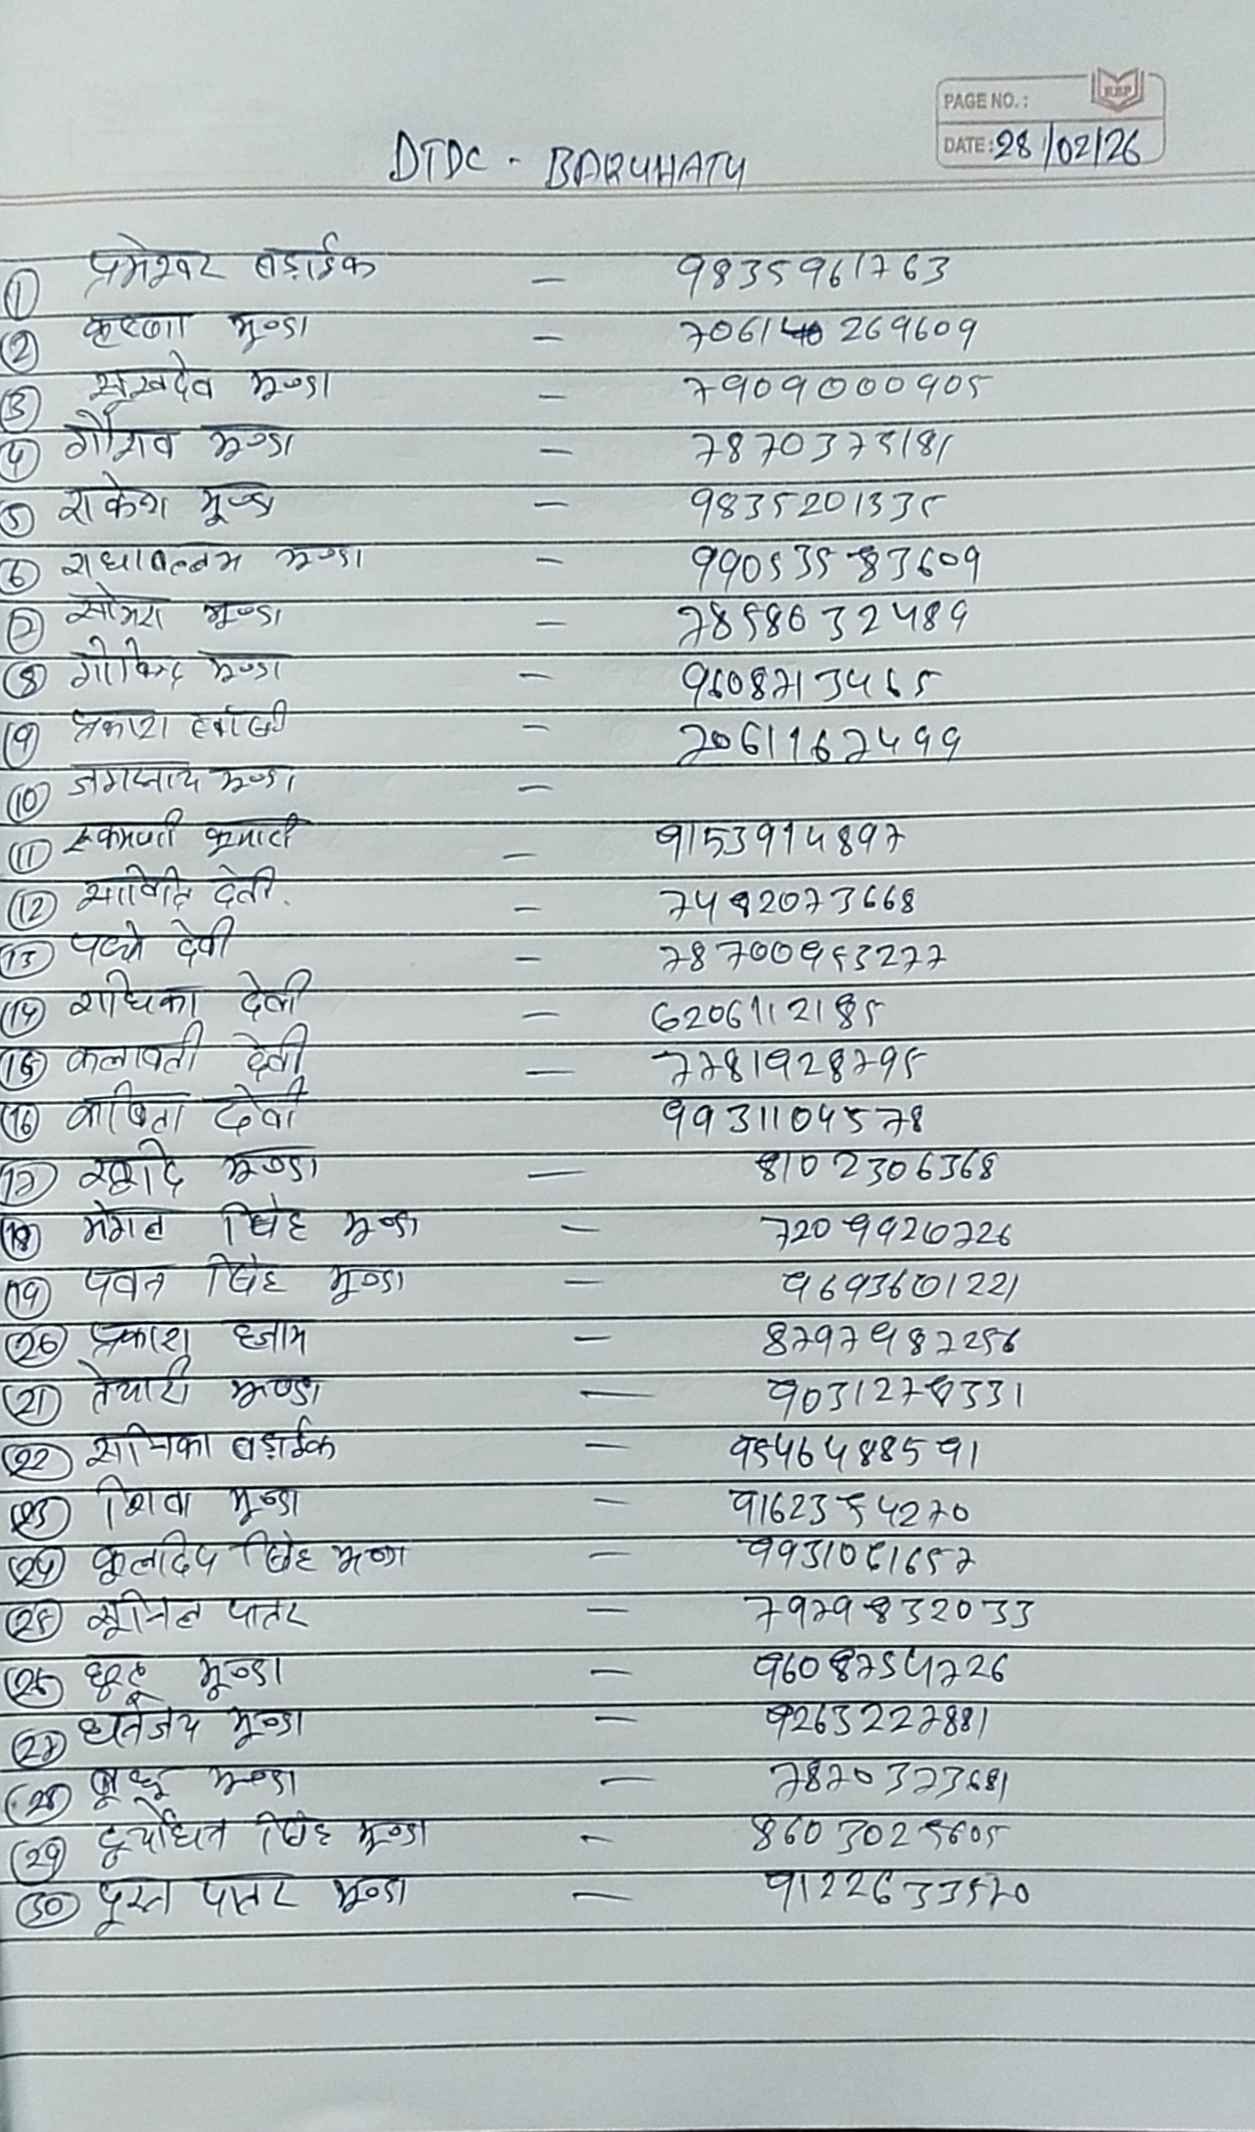 PAGE NO.:
DATE: 28/02/26
DTDC - BARUHATU
① प्रमेश्वर बड़ाईक - 9835961763
② कृष्णा मुण्डा - 7061 269609
③ सुखदेव मुण्डा - 7909000905
④ गौरव मुण्डा - 7870375181
⑤ राकेश मुण्डा - 9835201335
⑥ राधाबल्लभ मुण्डा - 990535 83609
⑦ सोमरा मुण्डा - 7858632489
⑧ गोविन्द मुण्डा - 9608713465
⑨ प्रकाश - 7061162499
⑩ जगन्नाथ मुण्डा -
⑪ रुकमणी कुमारी - 9153914897
⑫ सावित्रि देवी. - 7482073668
⑬ देवी - 78700953277
⑭ राधिका देवी - 6206112185
⑮ कलावती देवी - 7781928795
⑯ कविता देवी 9931104578
⑰ मुण्डा - 8102306368
⑱ मंगल सिंह मुण्डा - 7209920726
⑲ पवन सिंह मुण्डा - 9693601221
⑳ प्रकाश हजाम - 8797987256
㉑ मुण्डा - 9031278331
㉒ बड़ाईक - 9546488591
㉓ शिवा मुण्डा - 9162354270
㉔ कुलदिप सिंह मुण्डा - 9931061657
㉕ सुनिल पातर - 7979832033
㉖ मुण्डा - 9608754726
㉗ धनंजय मुण्डा - 9263227881
㉘ बुधु मुण्डा - 7870373681
㉙ दुर्योधन सिंह मुण्डा - 8603025605
㉚ पातर मुण्डा - 9122633570